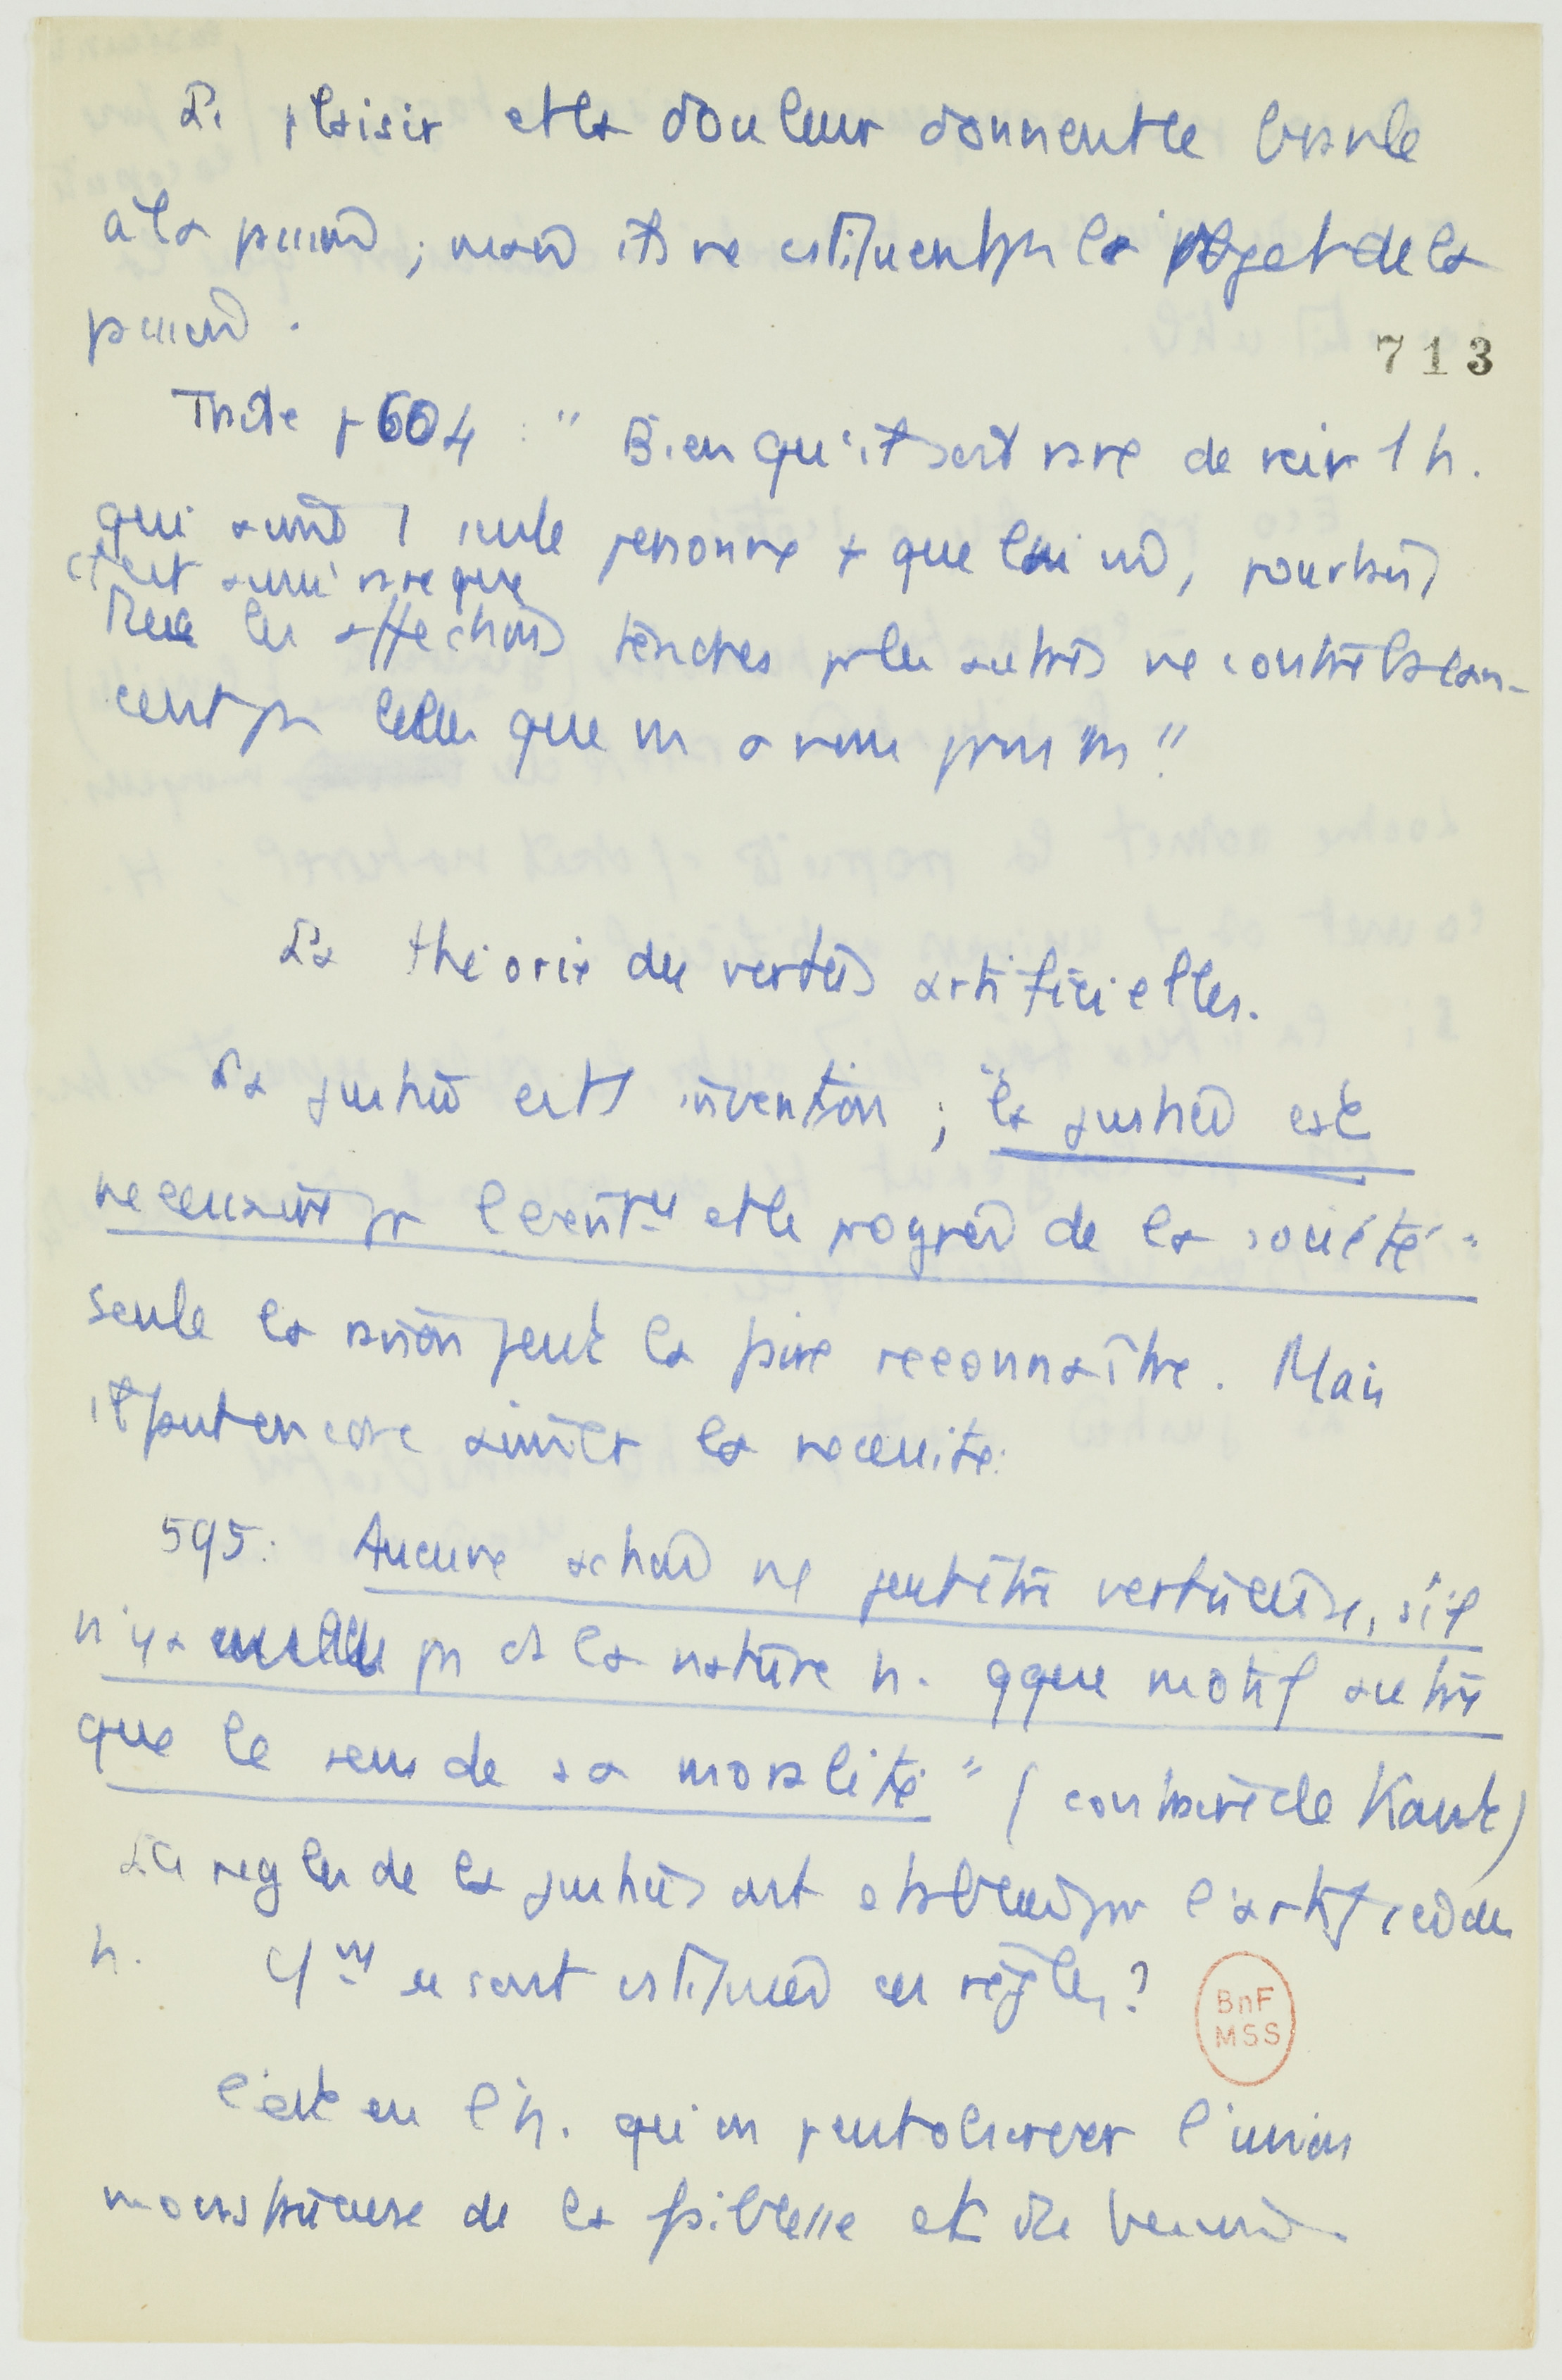 Le plaisir et la douleur donnent le branle
à la passion ; mais ils ne constituent pas le objet de la
passion.
713
Traité p 604 : " Bien qu'il soit rare de voir 1 h.
qui aime 1 seule personne + que lui-même, pourtant
c'est aussi rare que
les affections tendres pr les autres ne contrebalan-
cent pas celles que ns avons pour ns "
La théorie des vertus artificielles.
La justice est 1 invention ; "la justice est
nécessaire pr l'existence et le progrès de la société"
seule la raison peut la faire reconnaître. Mais
il faut encore aimer la nécessité.
595 : Aucune action ne peut être vertueuse, s'il
n'y a pas ds la nature h. qque motif autre
que le sens de sa moralité" (contraire de Kant)
Les règles de la justice sont établies par l'artifice des
h. Cment se sont constituées ces règles ?
BnF
MSS
C'est en l'h. qu'on peut observer l'union
monstrueuse de la faiblesse et du besoin